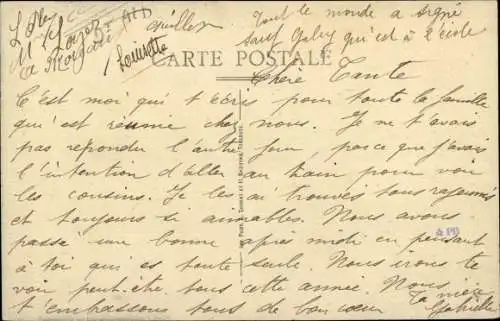 Tout le monde a signé
sauf Gaby qui est à l'école
Louisette
CARTE POSTALE
Chère Tante
C'est moi qui t'écris pour toute la famille
qu'est réunie chez nous. Je ne t'avais
pas repondu l'autre jour, pas ce que j'avais
l'intention d'aller au bain pour voir
les cousins. Je les ai trouvés tous rajeunis
et toujours si aimables. Nous avons
passé une bonne apres midi en pensant
à toi qui es toute seule. Nous irons te
voir peut-être tous cette année. Nous
t'embrassons tous de bon cœur
Ta nièce
Gabrielle